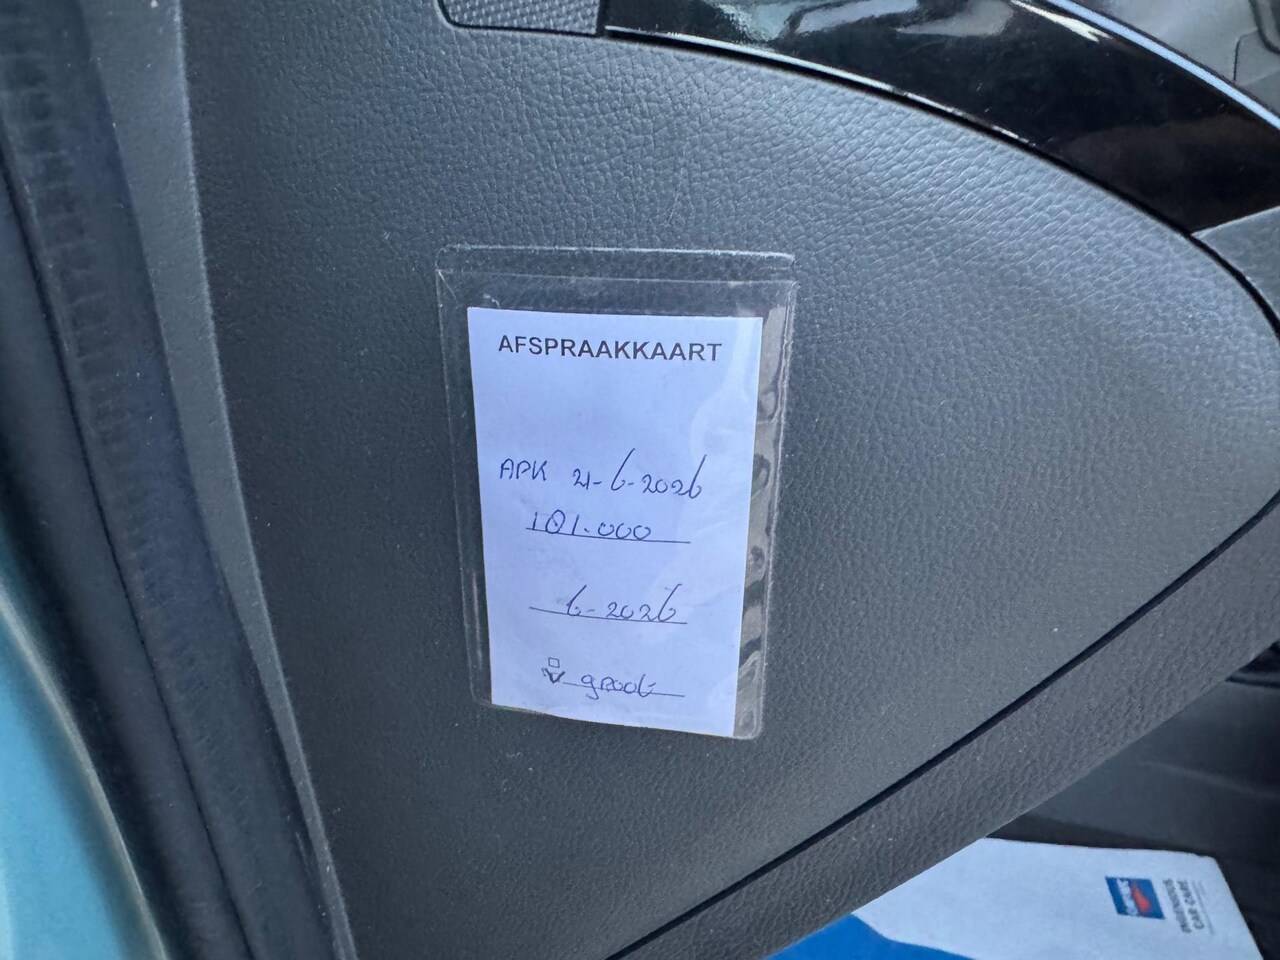 AFSPRAAKKAART
APK 21-6-2026
101.000
6-2026
groot
INGENIOUS
CAR CARE